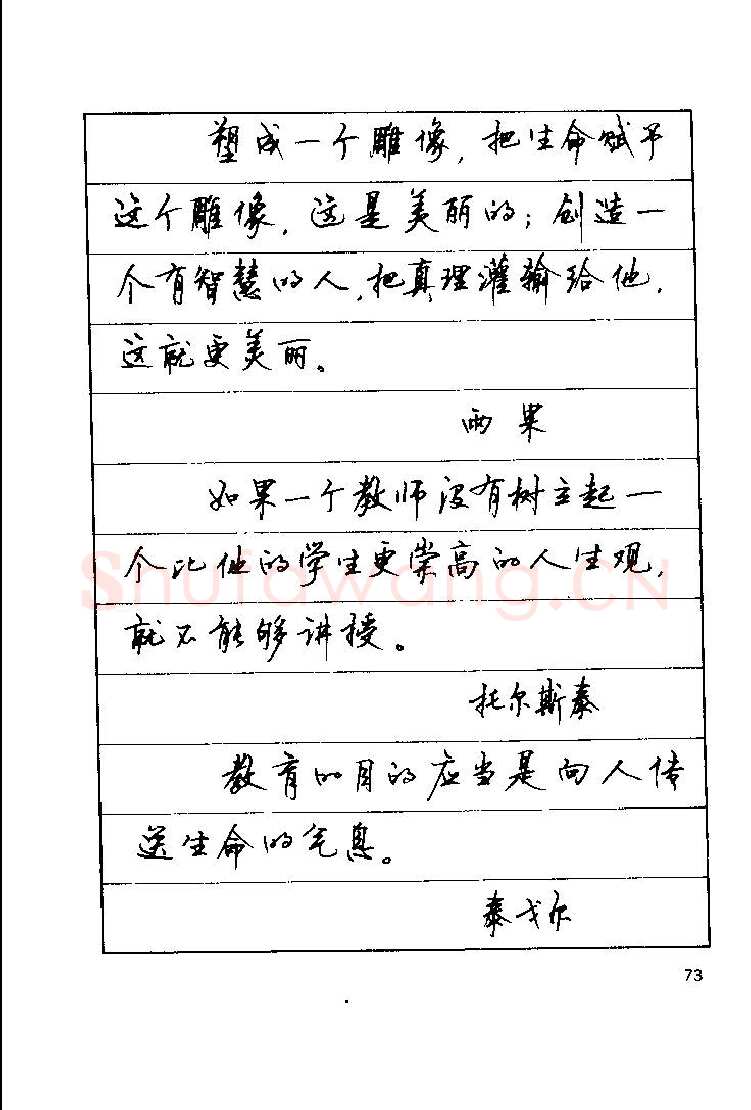 塑成一个雕像，把生命赋予
这个雕像，这是美丽的；创造一
个有智慧的人，把真理灌输给他，
这就更美丽。
雨果
如果一个教师没有树立起一
个比他的学生更崇高的人生观，
就不能够讲授。
托尔斯泰
教育的目的应当是向人传
送生命的气息。
泰戈尔
Shufawang.CN
73